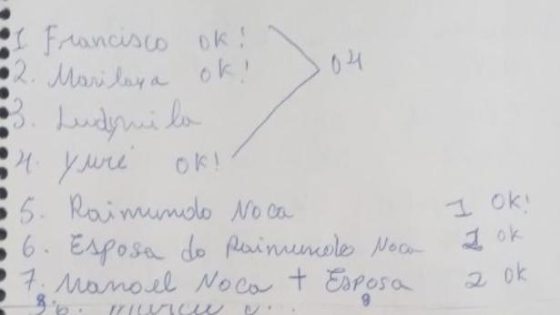 1 Francisco OK!
2. Marilaya OK!
04
3. Ludymila
4. Yuri OK!
5. Raimundo Noca 1 OK!
6. Esposa do Raimundo Noca 1 OK
7. Manoel Noca + Esposa 2 OK